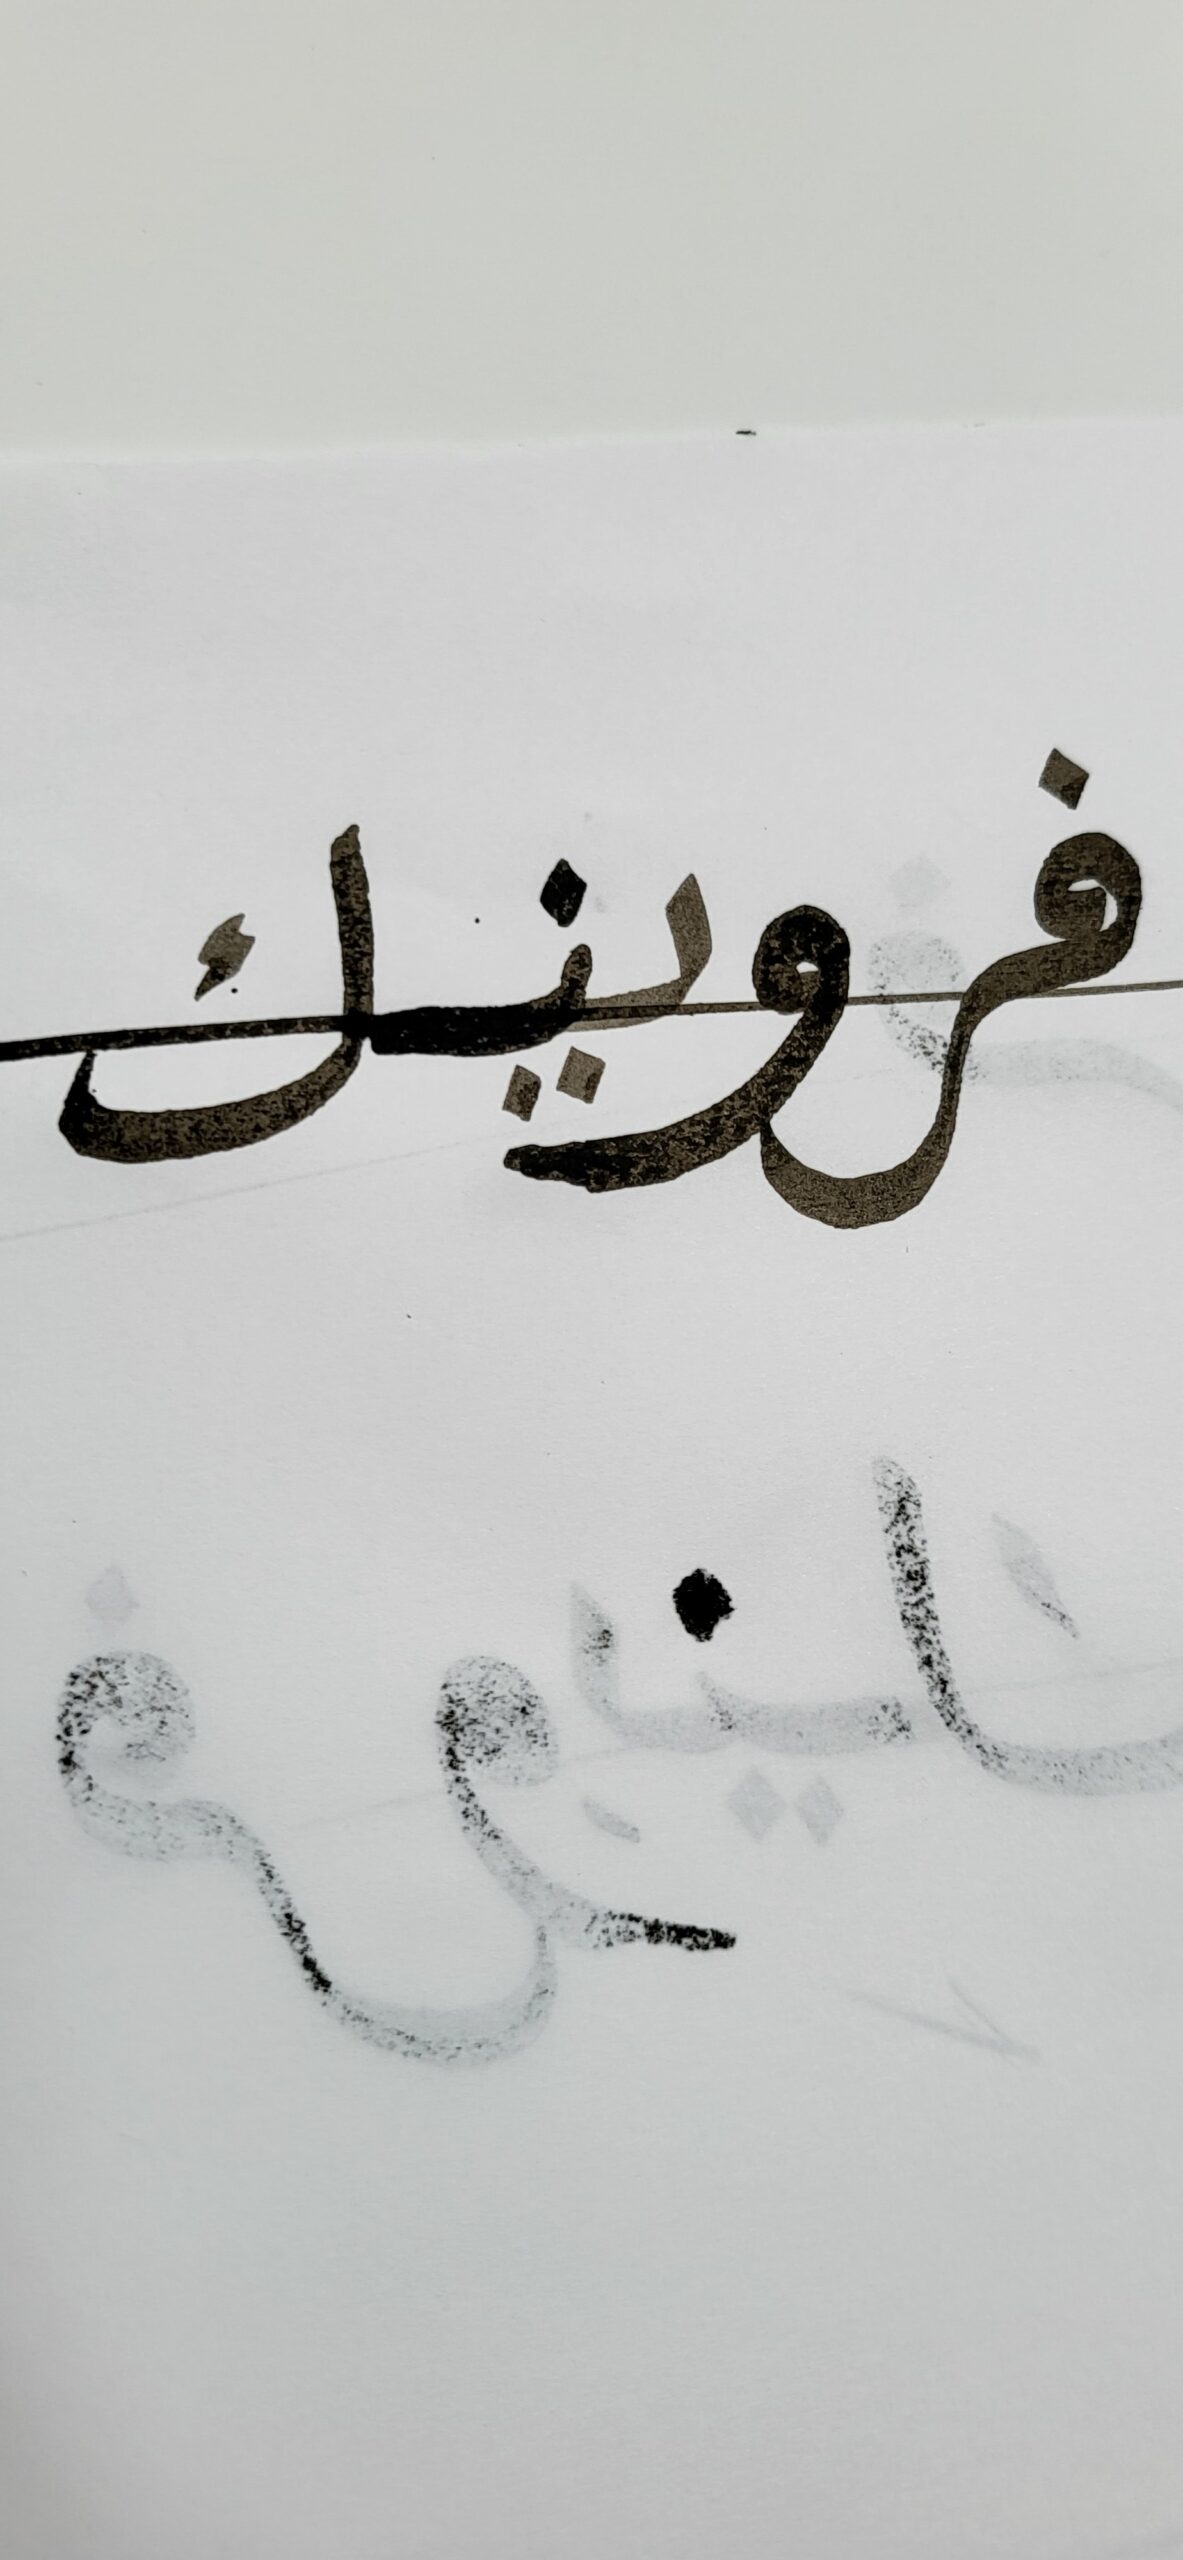 فروينك